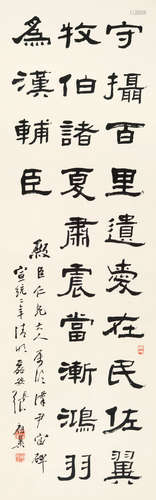 守攝百里遺愛在民佐翼
牧伯諸夏肅震當漸鴻羽
為漢輔臣
殿臣仁兄大人屬臨漢尹宙碑
宣統二年清明